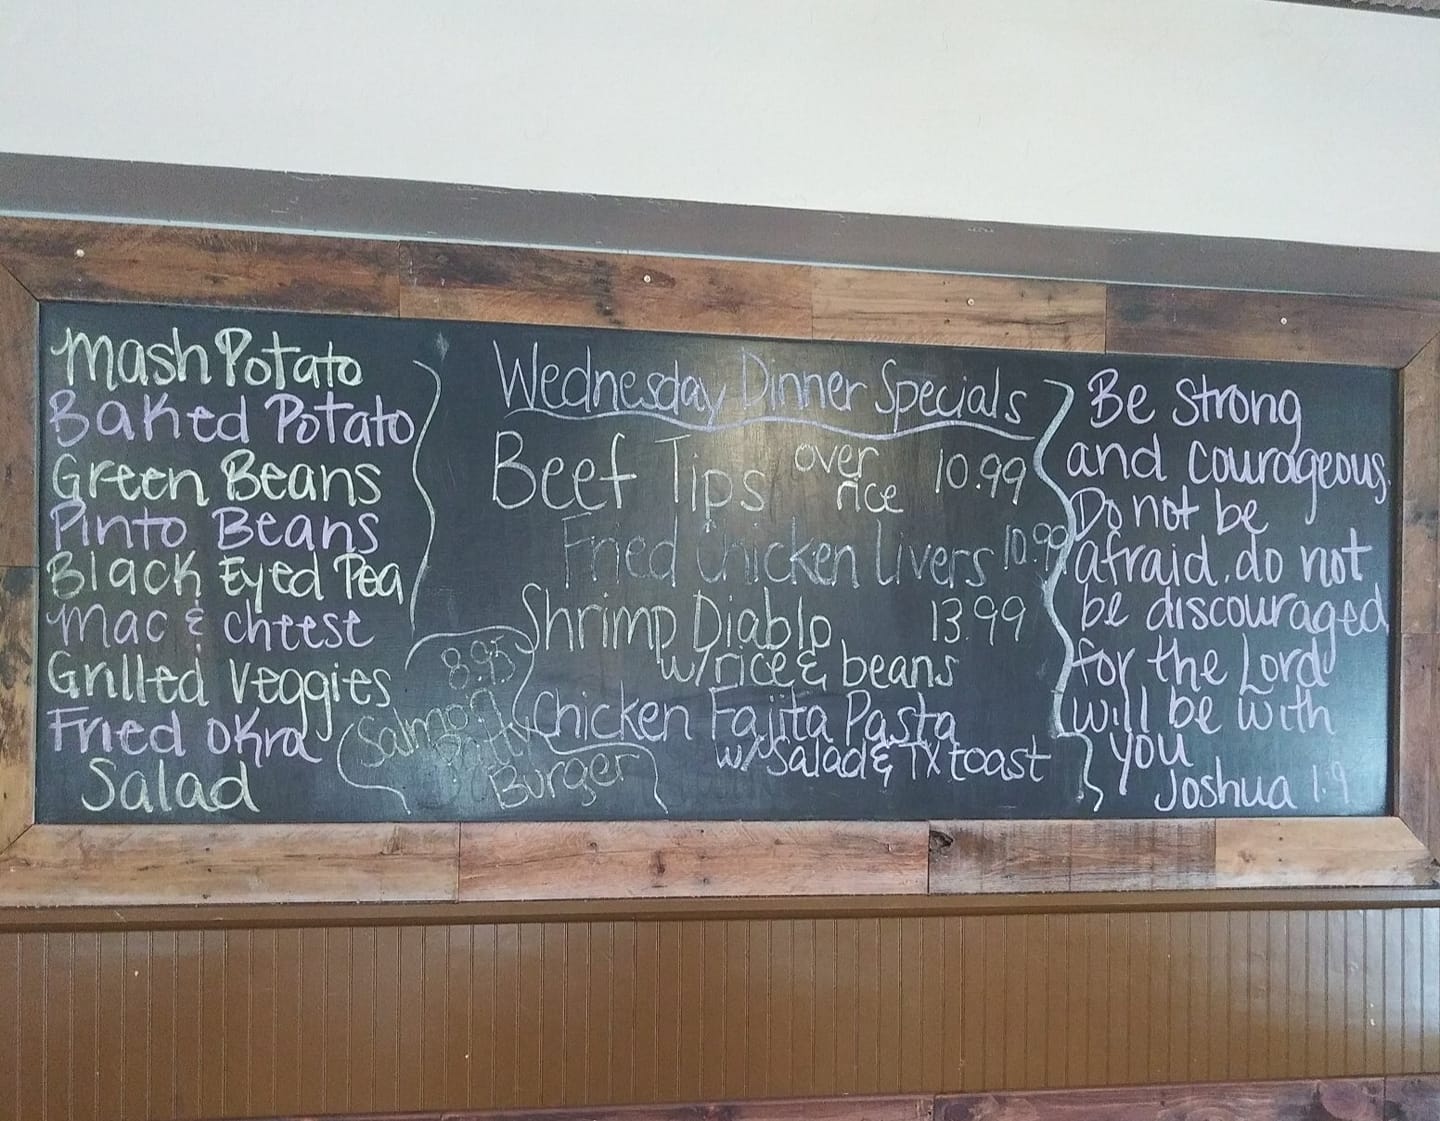 Mash Potato
Baked Potato
Green Beans
Pinto Beans
Black Eyed Pea
Mac & cheese
Grilled Veggies
Fried Okra
Salad
Wednesday Dinner Specials
Beef Tips over rice 10.99
Fried Chicken Livers 10.99
Shrimp Diablo 13.99
w/rice & beans
Chicken Fajita Pasta
w/Salad & TX toast
8.95
Salmon
Patty
Burger
Be Strong
and courageous.
Do not be
afraid. do not
be discouraged
for the Lord
will be with
you
Joshua 1:9